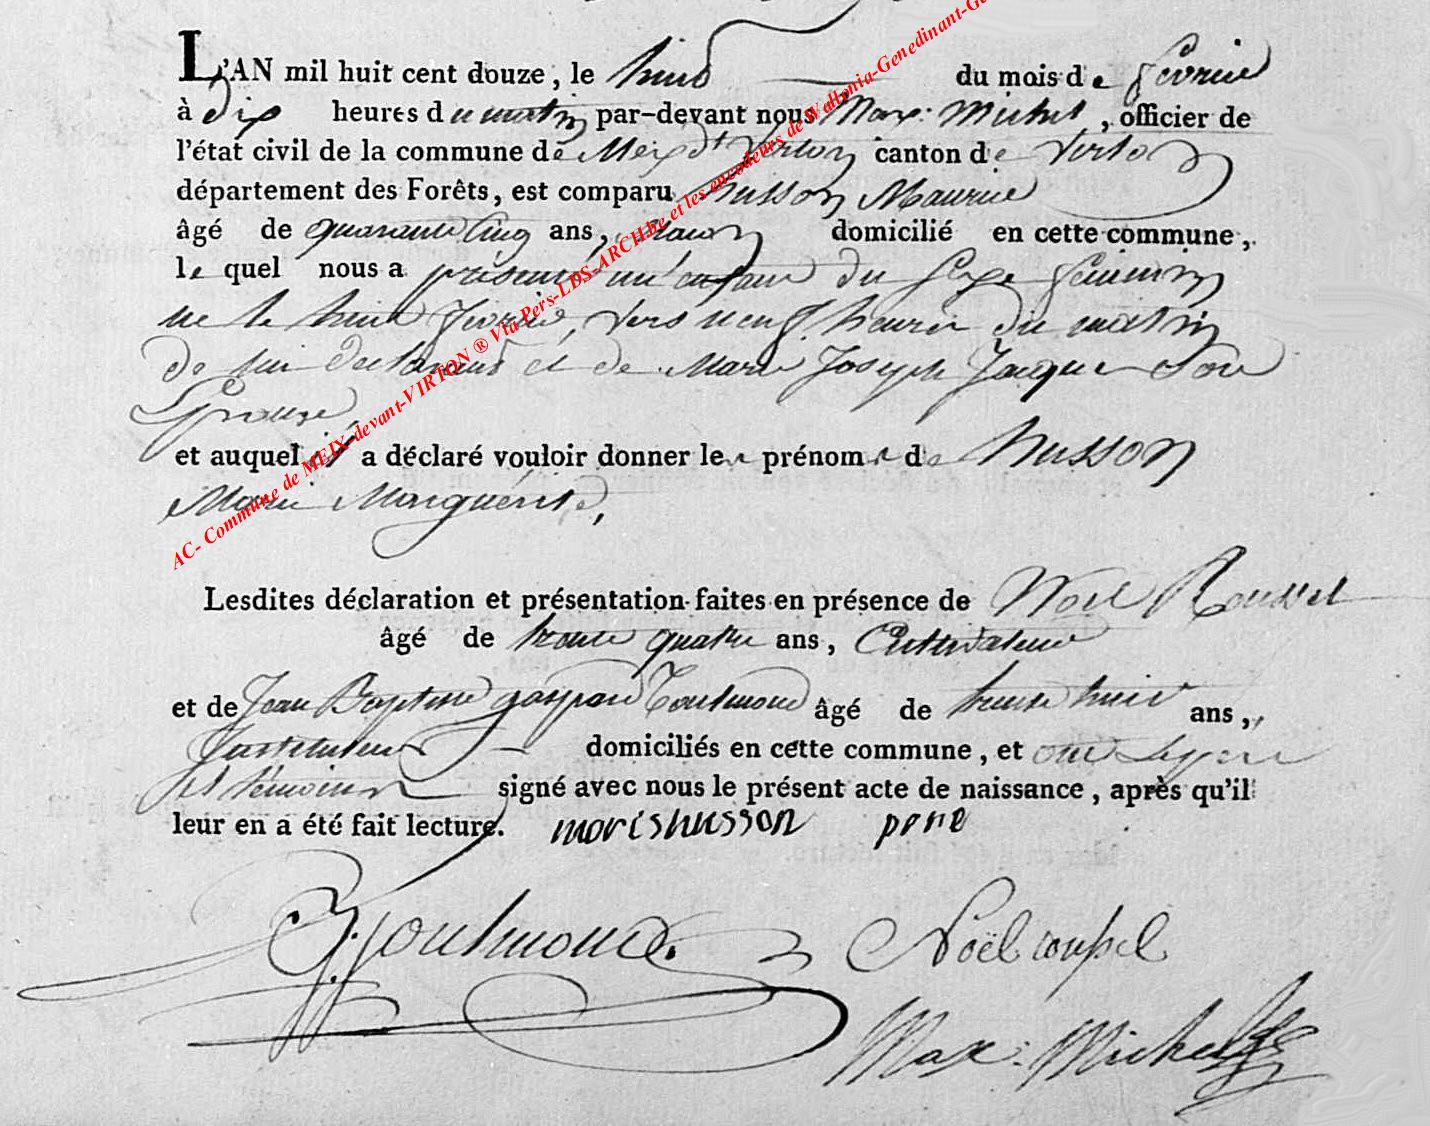 L'AN mil huit cent douze, le huit du mois de fevrier
à dix heures du matin par-devant nous Max: Michel, officier de
l'état civil de la commune de Meix dt Virton canton de Virton
département des Forêts, est comparu husson Maurice
âgé de quarante cinq ans, domicilié en cette commune,
le quel nous a présenté un enfant du sexe feminin
ne le huit fevrier, vers neuf heures du matin
de lui declarant et de Marie Joseph Jacque son
Epouse,
et auquel il a déclaré vouloir donner les prénoms de husson
Marie Marguerite,
Lesdites déclaration et présentation faites en présence de Noel Roussel
âgé de trente quatre ans, Cultivateur
et de Jean Baptiste gaspard Toulmond âgé de trente huit ans,
domiciliés en cette commune, et
témoins signé avec nous le présent acte de naissance, après qu'il
leur en a été fait lecture. morishusson pere
Toulmond. Noël
Max: Michel
AC- Commune de MEIX-devant-VIRTON ® Via Pers-LDS-ARCH.be et les encodeurs de Wallonia-Genedinant-Ge